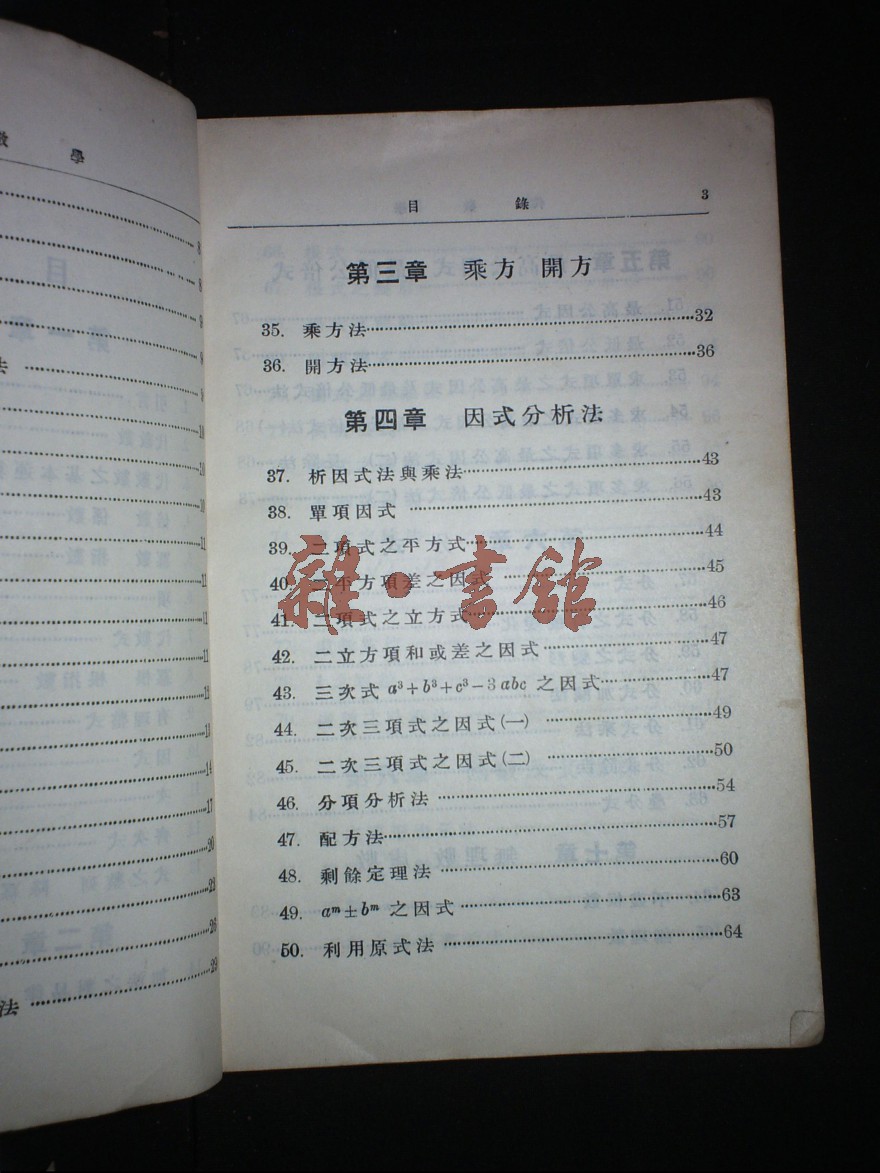 數 學
8
8
9
9
法 9
10
10
10
11
11
11
11
13
13
14
17
20
22
26
法 29
目 錄 3
第三章 乘方 開方
35. 乘方法 32
36. 開方法 36
第四章 因式分析法
37. 析因式法與乘法 43
38. 單項因式 43
39. 二項式之平方式 44
40. 二平方項差之因式 45
41. 二項式之立方式 46
42. 二立方項和或差之因式 47
43. 三次式 a³+b³+c³−3abc 之因式 47
44. 二次三項式之因式(一) 49
45. 二次三項式之因式(二) 50
46. 分項分析法 54
47. 配方法 57
48. 剩餘定理法 60
49. aᵐ±bᵐ 之因式 63
50. 利用原式法 64
雜·書館